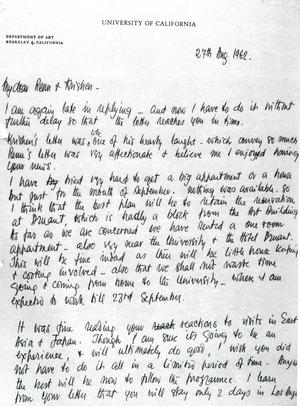 UNIVERSITY OF CALIFORNIA
DEPARTMENT OF ART
BERKELEY 4, CALIFORNIA
27th Aug 1962.
My dear Renu & Krishen -
I am again late in replying - and now I have to do it without
further delay so that the letter reaches you in time.
Krishen's letter was like one of his hearty laughs - which convey so much
Renu's letter was very affectionate & believe me I enjoyed having
your news.
I have tried very hard to get a big appartment or a house
but just for the month of September. nothing was available. so
I think that the best plan will be to retain the reservation
at Durant, which is hardly a block from the Art Building
As far as we are concerned we have rented a one room
appartment - also very near the University & the Hotel Durant.
This will be fine indeed as there will be little home keeping
& cooking involved - also that we shall not waste time
going & coming from to the University - where I am
expected to work till 23rd September.
It was fine reading your reactions to visits in East
Asia & Japan. Though I am sure its going to be an
experience, & will ultimately do good, I wish you did
not have to do it all in a limited period of time. Anyway
the best will be now to follow the programme. I learn
from your letter that you will stay only 2 days in Los Angeles